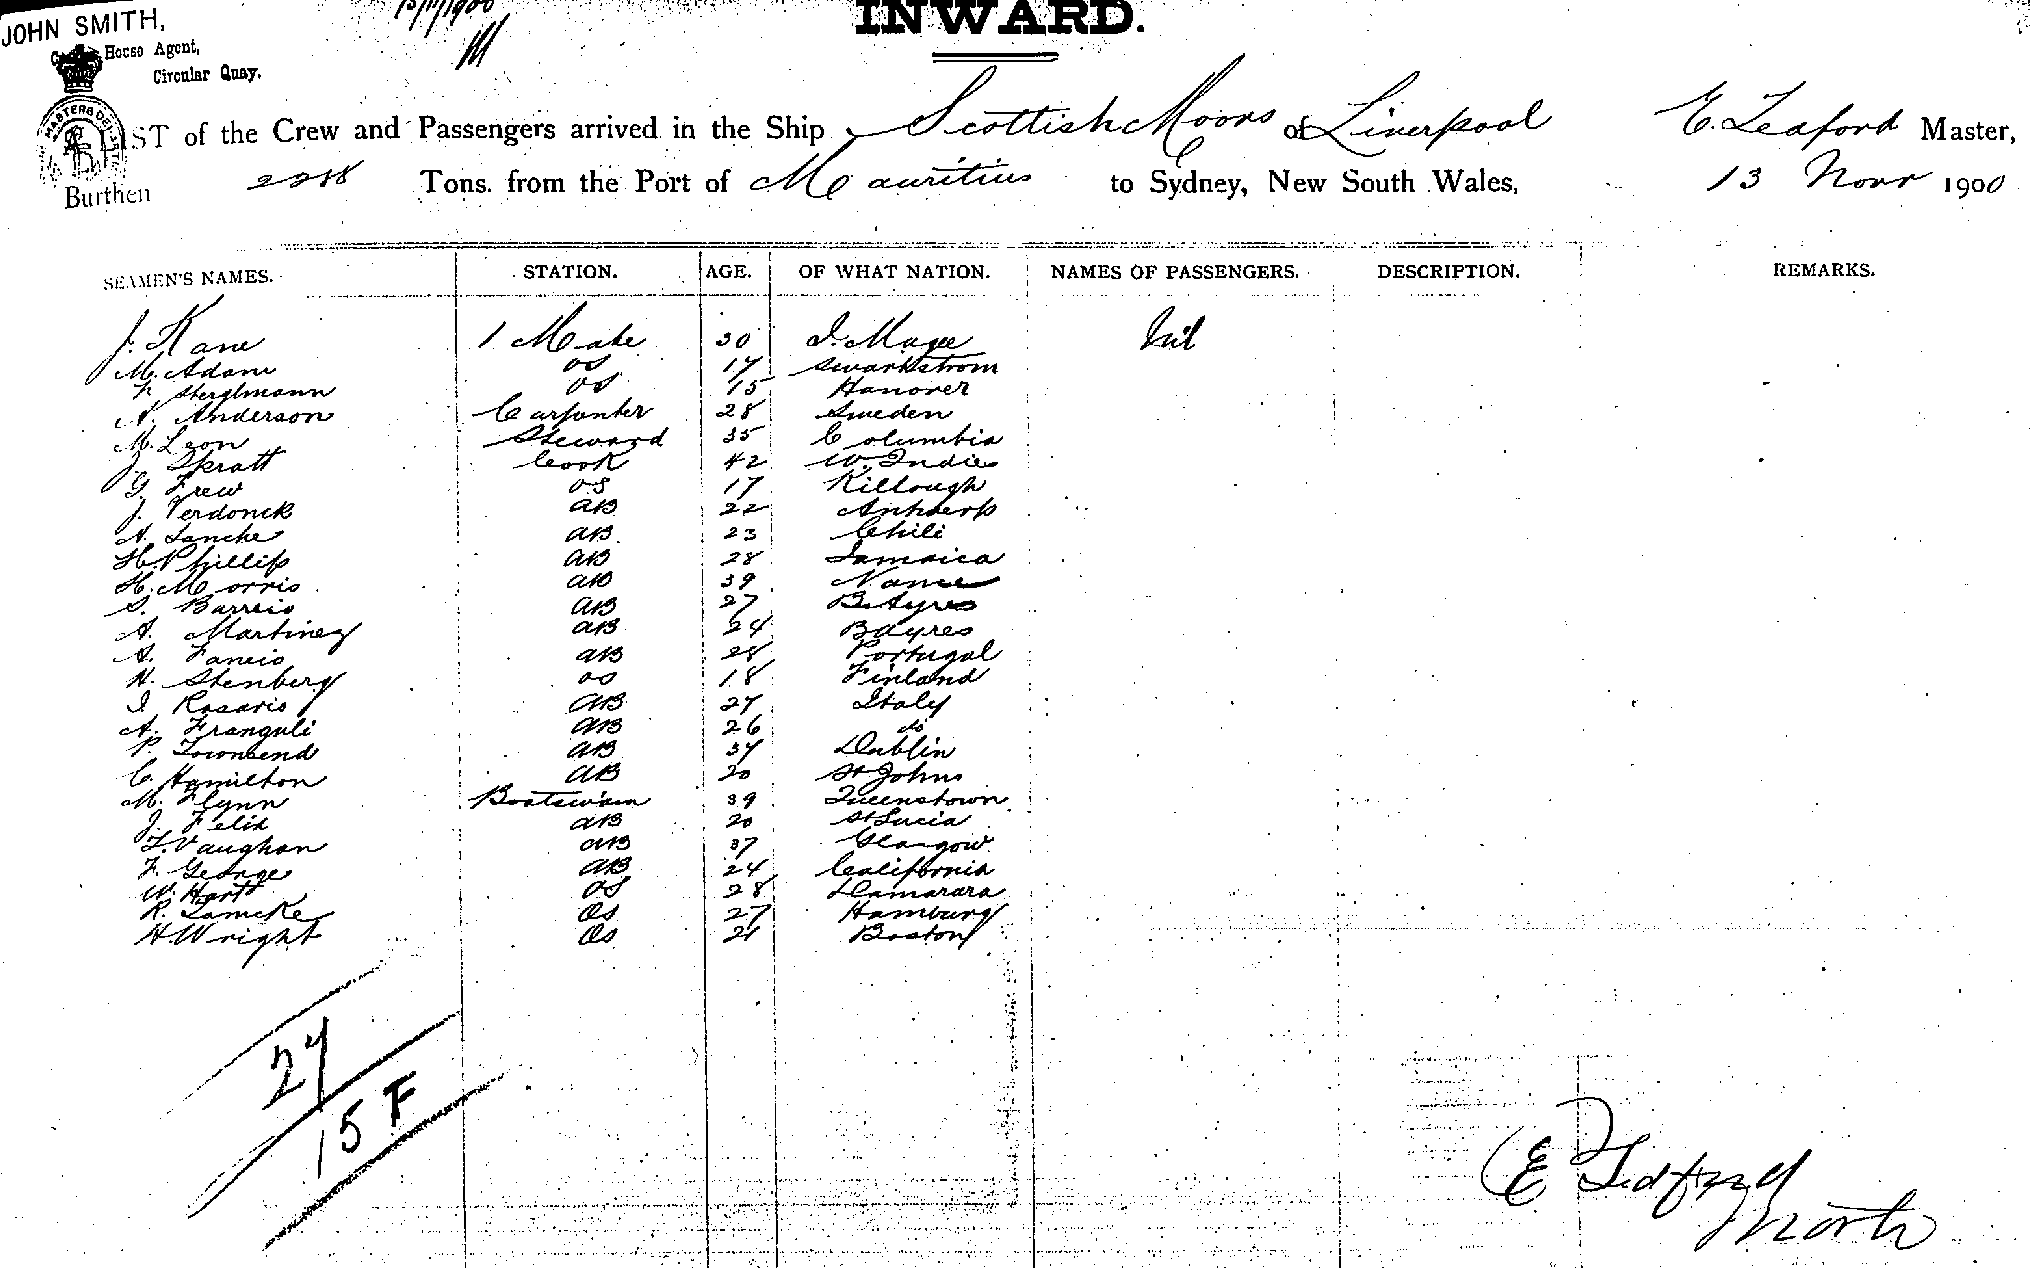 JOHN SMITH,
House Agent,
Circular Quay.
13/11/1900
INWARD.
LIST of the Crew and Passengers arrived in the Ship Scottish Moors of Liverpool E. Leaford Master,
Burthen Tons. from the Port of Mauritius to Sydney, New South Wales, 13 Novr 1900
SEAMEN'S NAMES. STATION. AGE. OF WHAT NATION. NAMES OF PASSENGERS. DESCRIPTION. REMARKS.
J. Kane 1 Mate 30 I. Magee Nil
M. Adam OS 17
F. OS 15 Hanover
A. Anderson Carpenter 28 Sweden
M. Leon Steward 35 Columbia
J. Spratt Cook 42 W. Indies
G. Frew OS 17 Killough
J. Verdonck AB 22 Antwerp
A. Sanche AB 23 Chili
H. Phillip AB 28 Jamaica
H. Morris AB 39
S. Barreio AB 27 B. Ayres
A. Martinez AB 24 B Ayres
A. AB 28 Portugal
N. Stenberg OS 18 Finland
I Rosario AB 27 Italy
A. Franguli AB 26 do
P. Townsend AB 37 Dublin
C. Hamilton AB 20 St Johns
M. Flynn Boatswain 39 Queenstown
J. Felix AB 20 St Lucia
T. Vaughan AB 37 Glasgow
F. George AB 24 California
W. Hart OS 28 Damarara
R. Lamcke OS 27 Hamburg
H. Wright OS 21 Boston
27
15 F